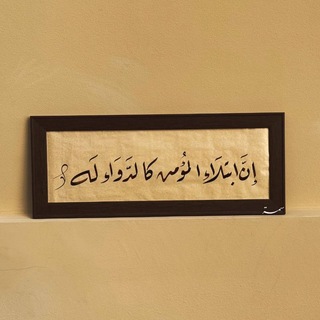 إنَّ ابتلَاءَ المُؤمن كالدَّوَاءِ لَه